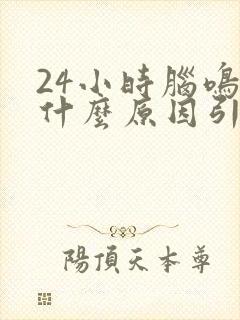 24小時腦鳴
什麼原因引
陽頂天本尊